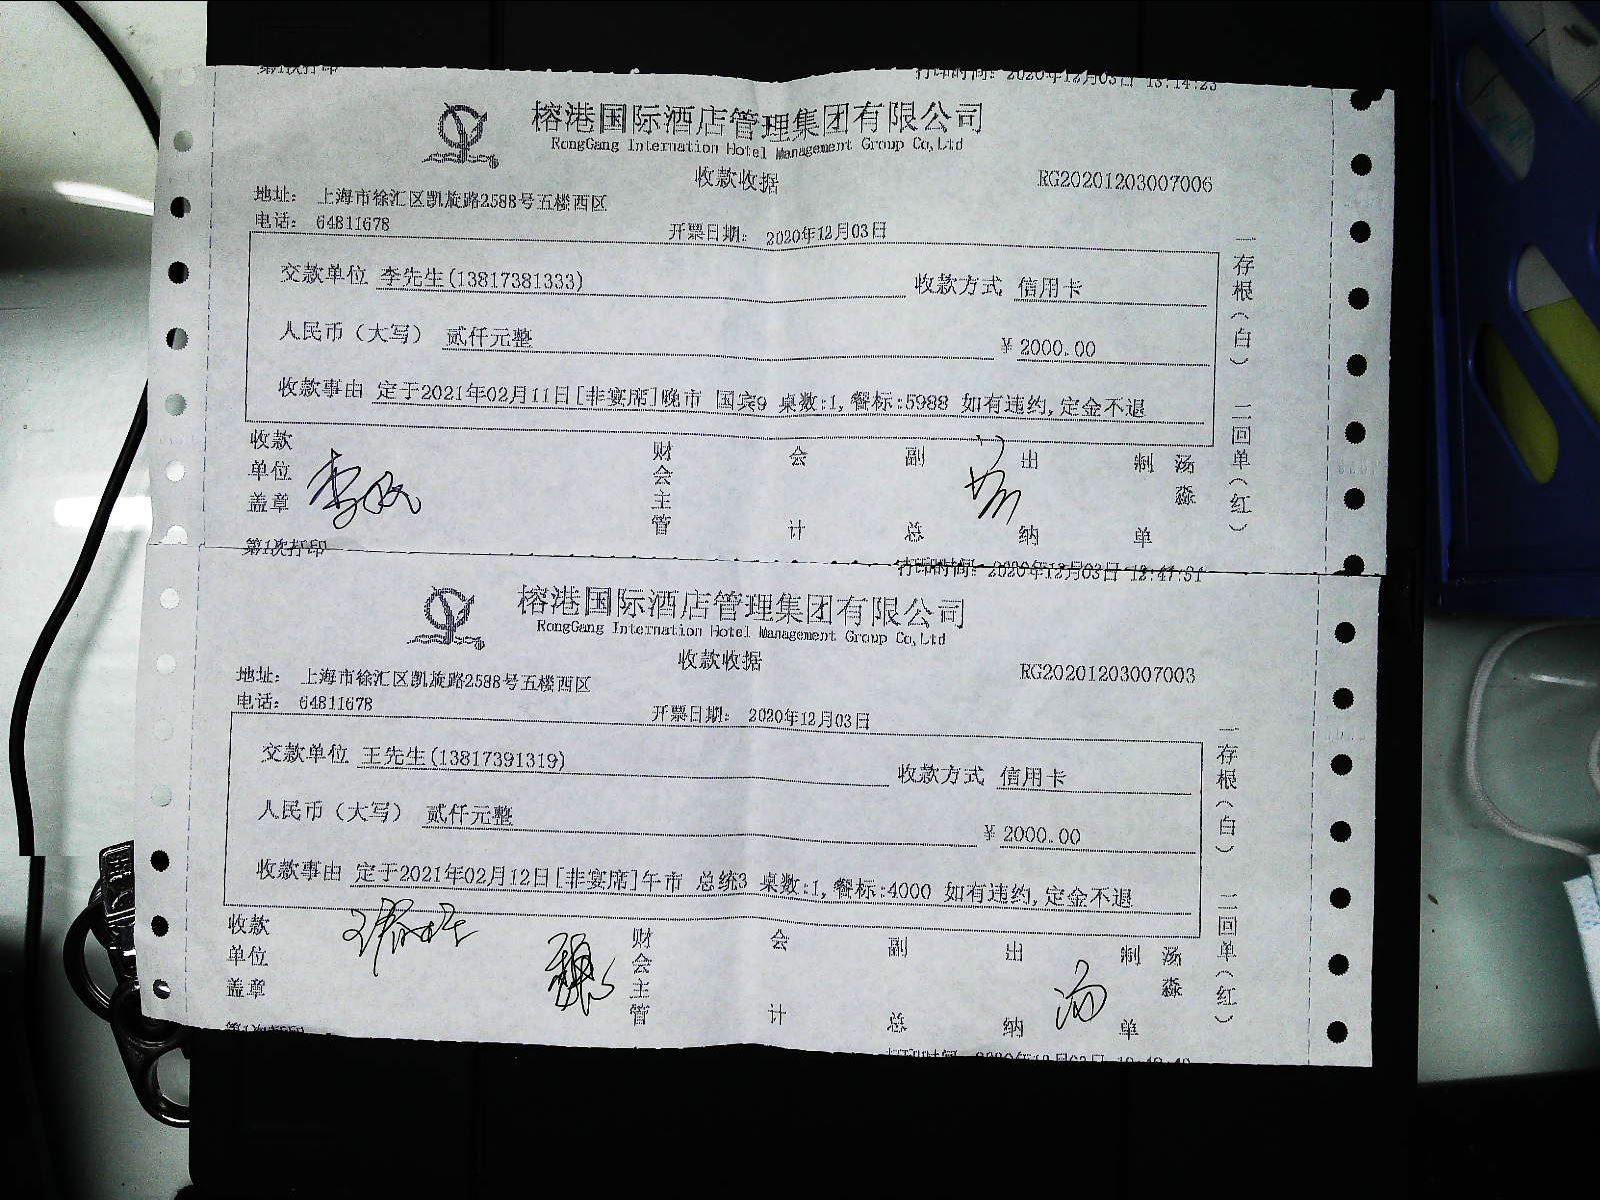 第1次打印 打印时间: 2020年12月03日 13:14:23
榕港国际酒店管理集团有限公司
RongGang Internation Hotel Management Group Co,Ltd
收款收据 RG20201203007006
地址: 上海市徐汇区凯旋路2588号五楼西区
电话: 64811678 开票日期: 2020年12月03日
交款单位 李先生(13817381333) 收款方式 信用卡
人民币(大写) 贰仟元整 ¥ 2000.00
收款事由 定于2021年02月11日[非宴席]晚市 国宾9 桌数:1,餐标:5988 如有违约,定金不退
收款单位盖章 财会主管 会计 副总 出纳 制单 汤淼
一存根(白) 二回单(红)
第1次打印 打印时间: 2020年12月03日 12:47:51
榕港国际酒店管理集团有限公司
RongGang Internation Hotel Management Group Co,Ltd
收款收据 RG20201203007003
地址: 上海市徐汇区凯旋路2588号五楼西区
电话: 64811678 开票日期: 2020年12月03日
交款单位 王先生(13817391319) 收款方式 信用卡
人民币(大写) 贰仟元整 ¥ 2000.00
收款事由 定于2021年02月12日[非宴席]午市 总统3 桌数:1,餐标:4000 如有违约,定金不退
收款单位盖章 财会主管 会计 副总 出纳 制单 汤淼
一存根(白) 二回单(红)